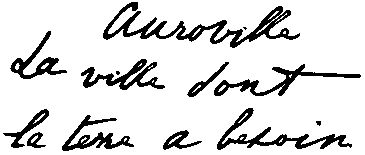 Auroville
La ville dont
la terre a besoin